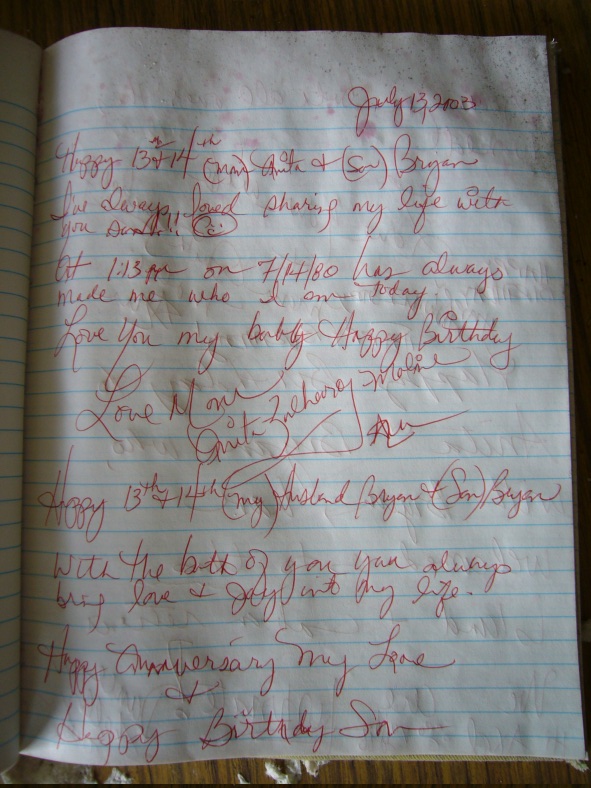 July 13, 2003
Happy 13th + 14th (mom) Anita + (Son) Bryan
I've always loved sharing my life with
you Son!!!
At 1:13 pm on 7/14/80 has always
made me who I am today.
Love You my baby Happy Birthday
Love Mom
Anita
Happy 13th + 14th (my) Husband Bryan + (Son) Bryan
With the both of you you always
bring love + joy into my life.
Happy Anniversary My Love
+
Happy Birthday Son